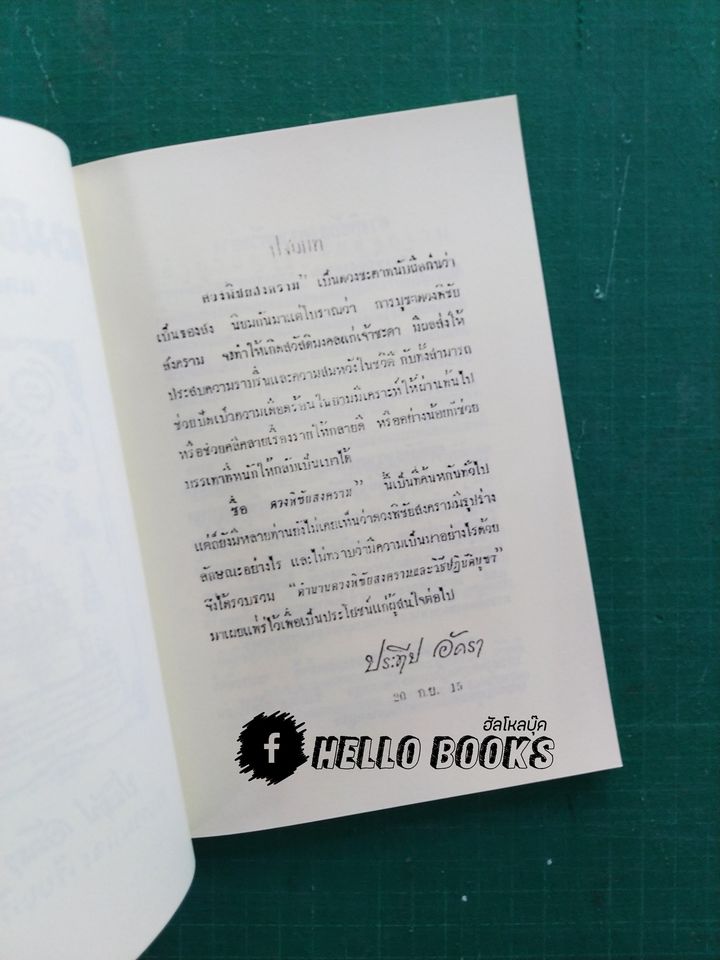 ปรารภ
ดวงพิชัยสงคราม" เป็นดวงชะตาหนับถือกันว่า
เป็นของสูง นิยมกันมาแต่โบราณว่า การบูชาดวงพิชัย
สงคราม จะทำให้เกิดสวัสดิมงคลแก่เจ้าชะตา มีผลส่งให้
ประสบความราบรื่นและความสมหวังในชีวิต กับทั้งสามารถ
ช่วยปัดเป่าความเดือดร้อน ในยามมีเคราะห์ให้ผ่านพ้นไป
หรือช่วยคลี่คลายเรื่องร้ายให้กลายดี หรืออย่างน้อยก็ช่วย
บรรเทาที่หนักให้กลับเป็นเบาได้
ชื่อ ดวงพิชัยสงคราม" นี้เป็นที่คุ้นหูกันทั่วไป
แต่ก็ยังมีหลายท่านยังไม่เคยเห็นว่าดวงพิชัยสงครามมีรูปร่าง
ลักษณะอย่างไร และไม่ทราบว่ามีความเป็นมาอย่างไรด้วย
จึงได้รวบรวม "ตำนานดวงพิชัยสงครามและวิธีปฏิบัติบูชา"
มาเผยแพร่ไว้เพื่อเป็นประโยชน์แก่ผู้สนใจต่อไป
ประทีป อัครา
20 ก.ย. 15
ฮัลโหลบุ๊ค
f HELLO BOOKS